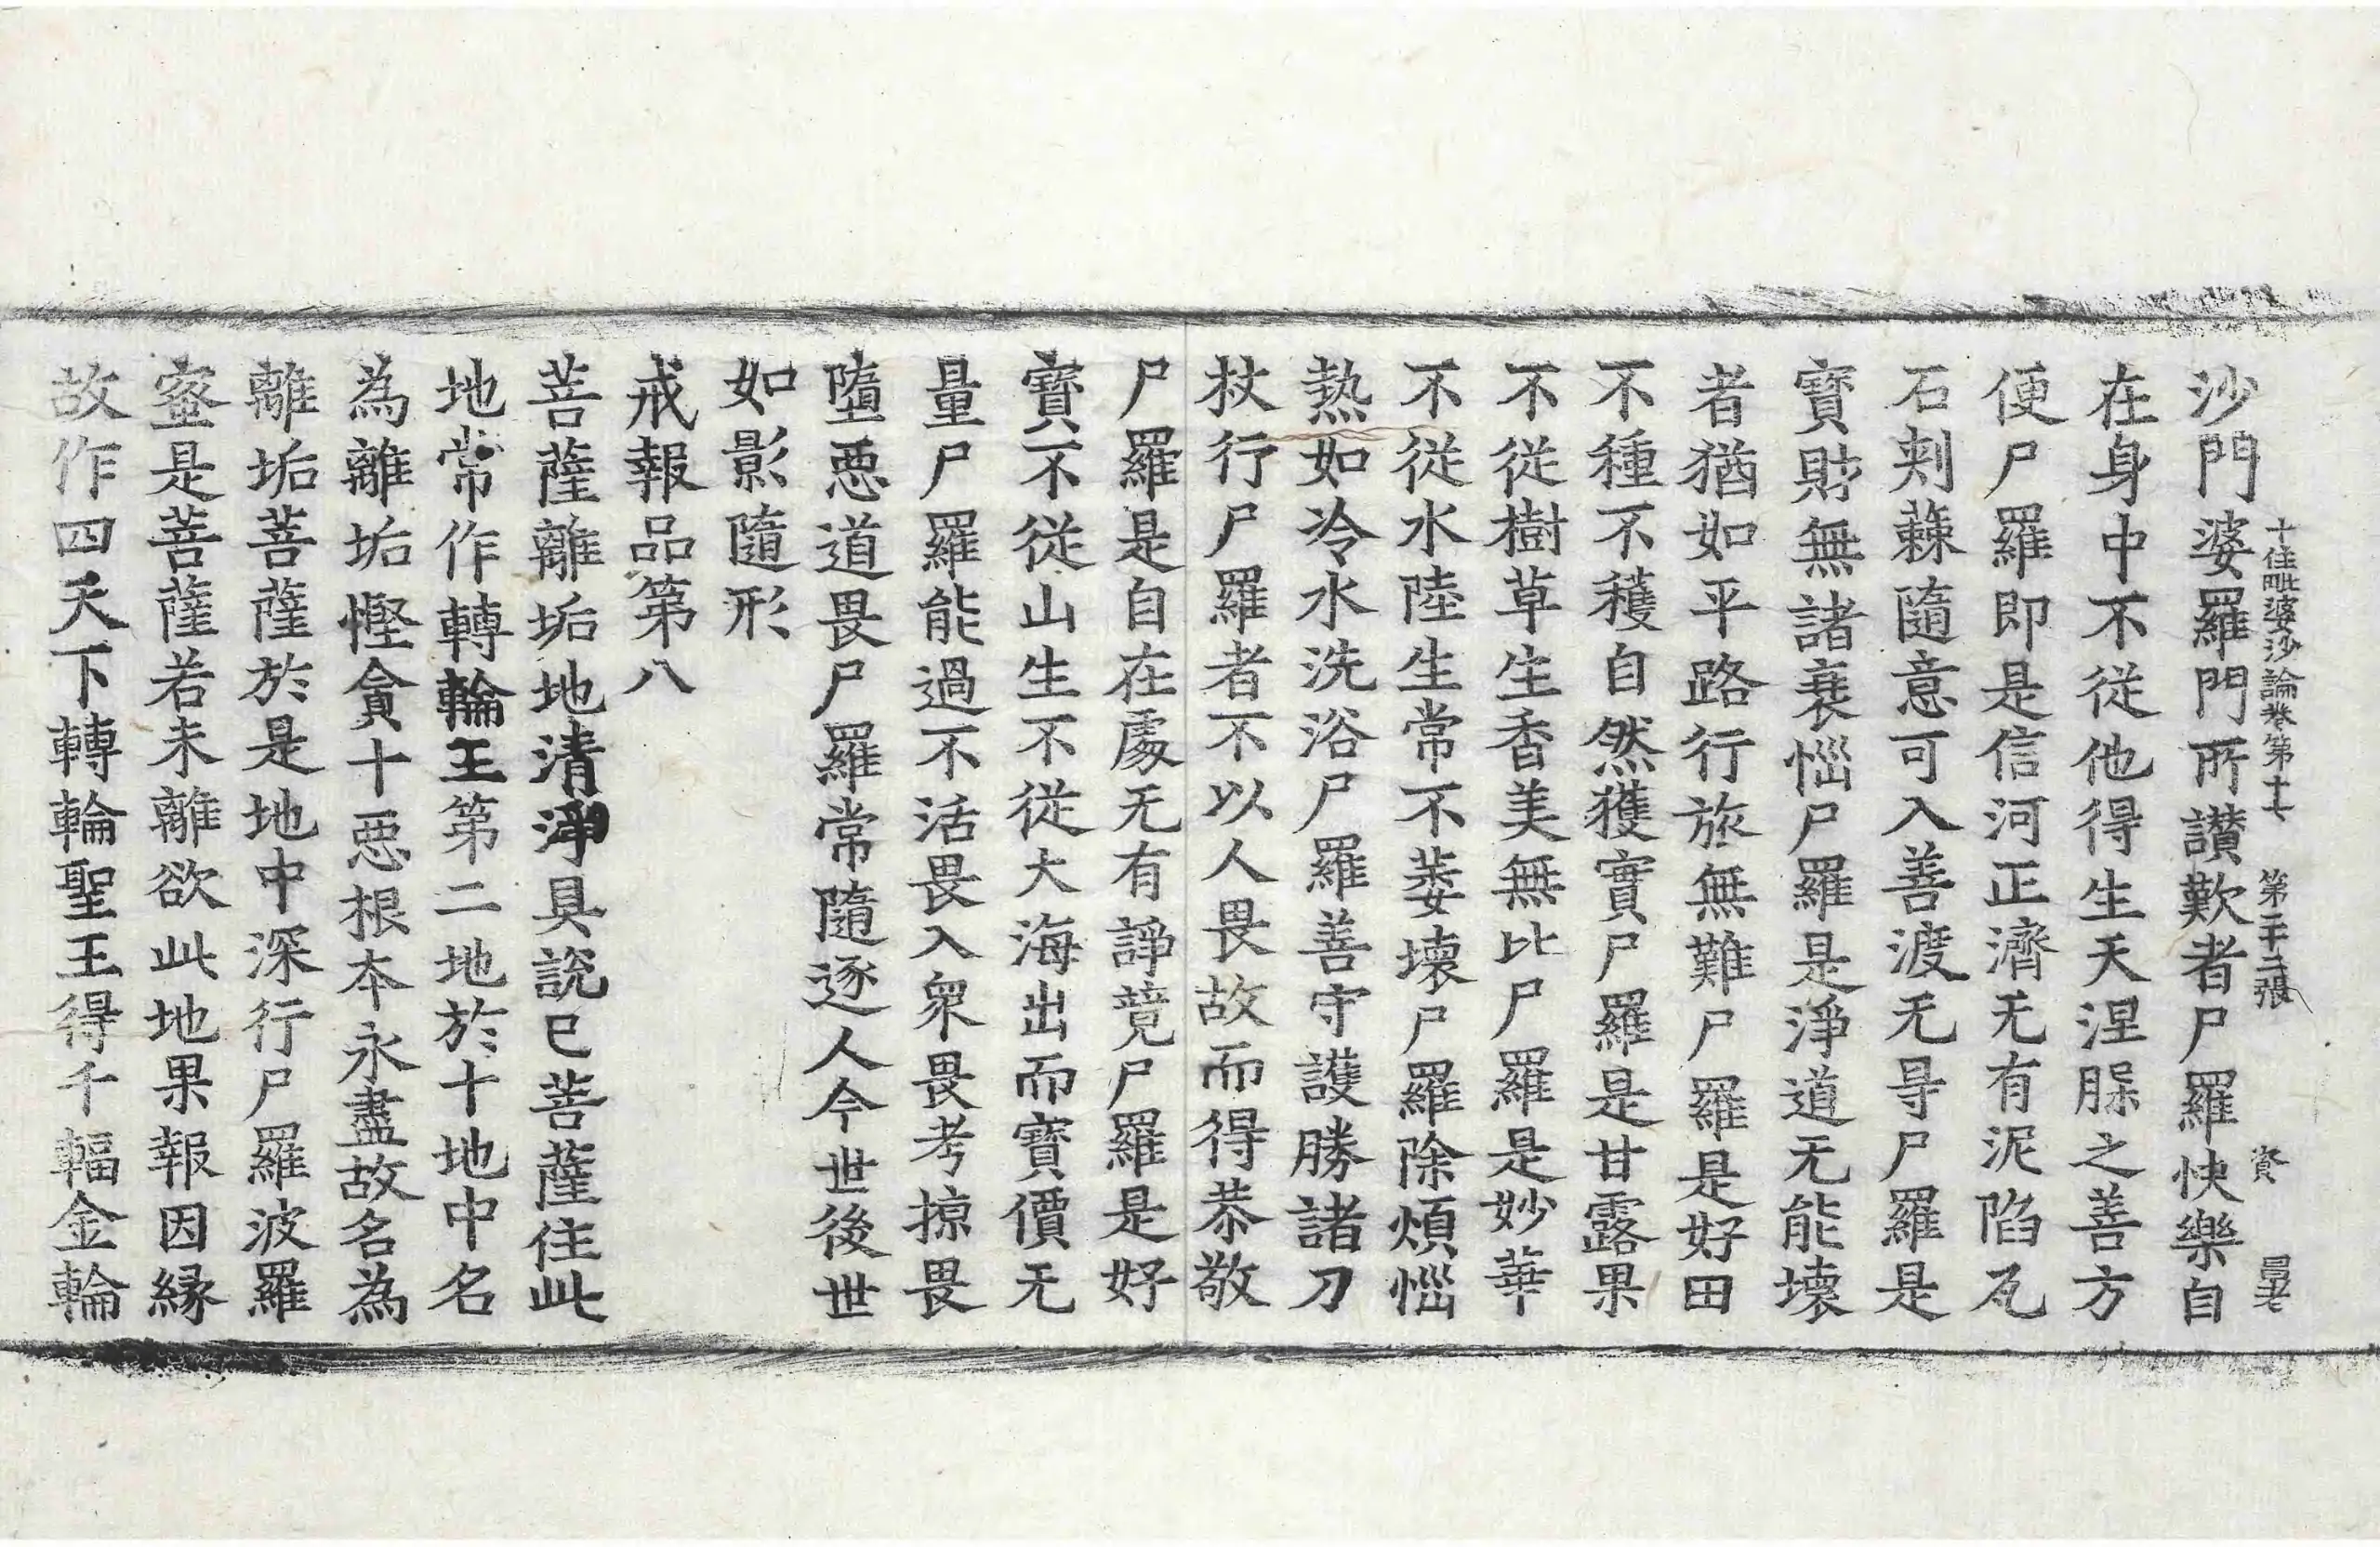 十住毗婆沙論卷第十七 第二十二張 資
沙門婆羅門所讃歎者尸羅快樂自
在身中不從他得生天涅脲之善方
便尸羅即是信河正濟无有泥陷瓦
石刾蕀隨意可入善渡无㝵尸羅是
寶財無諸衰惱尸羅是淨道无能壞
者猶如平路行旅無難尸羅是好田
不種不穫自然獲實尸羅是甘露果
不從樹草生香美無比尸羅是妙華
不從水陸生常不萎壞尸羅除煩惱
熱如冷水洗浴尸羅善守護勝諸刀
杖行尸羅者不以人畏故而得恭敬
尸羅是自在處无有諍競尸羅是好
寶不從山生不從大海出而寶價无
量尸羅能過不活畏入衆畏考掠畏
墮惡道畏尸羅常隨逐人今世後世
如影隨形
戒報品第八
菩薩離垢地清淨具說已菩薩住此
地常作轉輪王第二地於十地中名
為離垢慳貪十惡根本永盡故名為
離垢菩薩於是地中深行尸羅波羅
蜜是菩薩若未離欲此地果報因緣
故作四天下轉輪聖王得千輻金輪